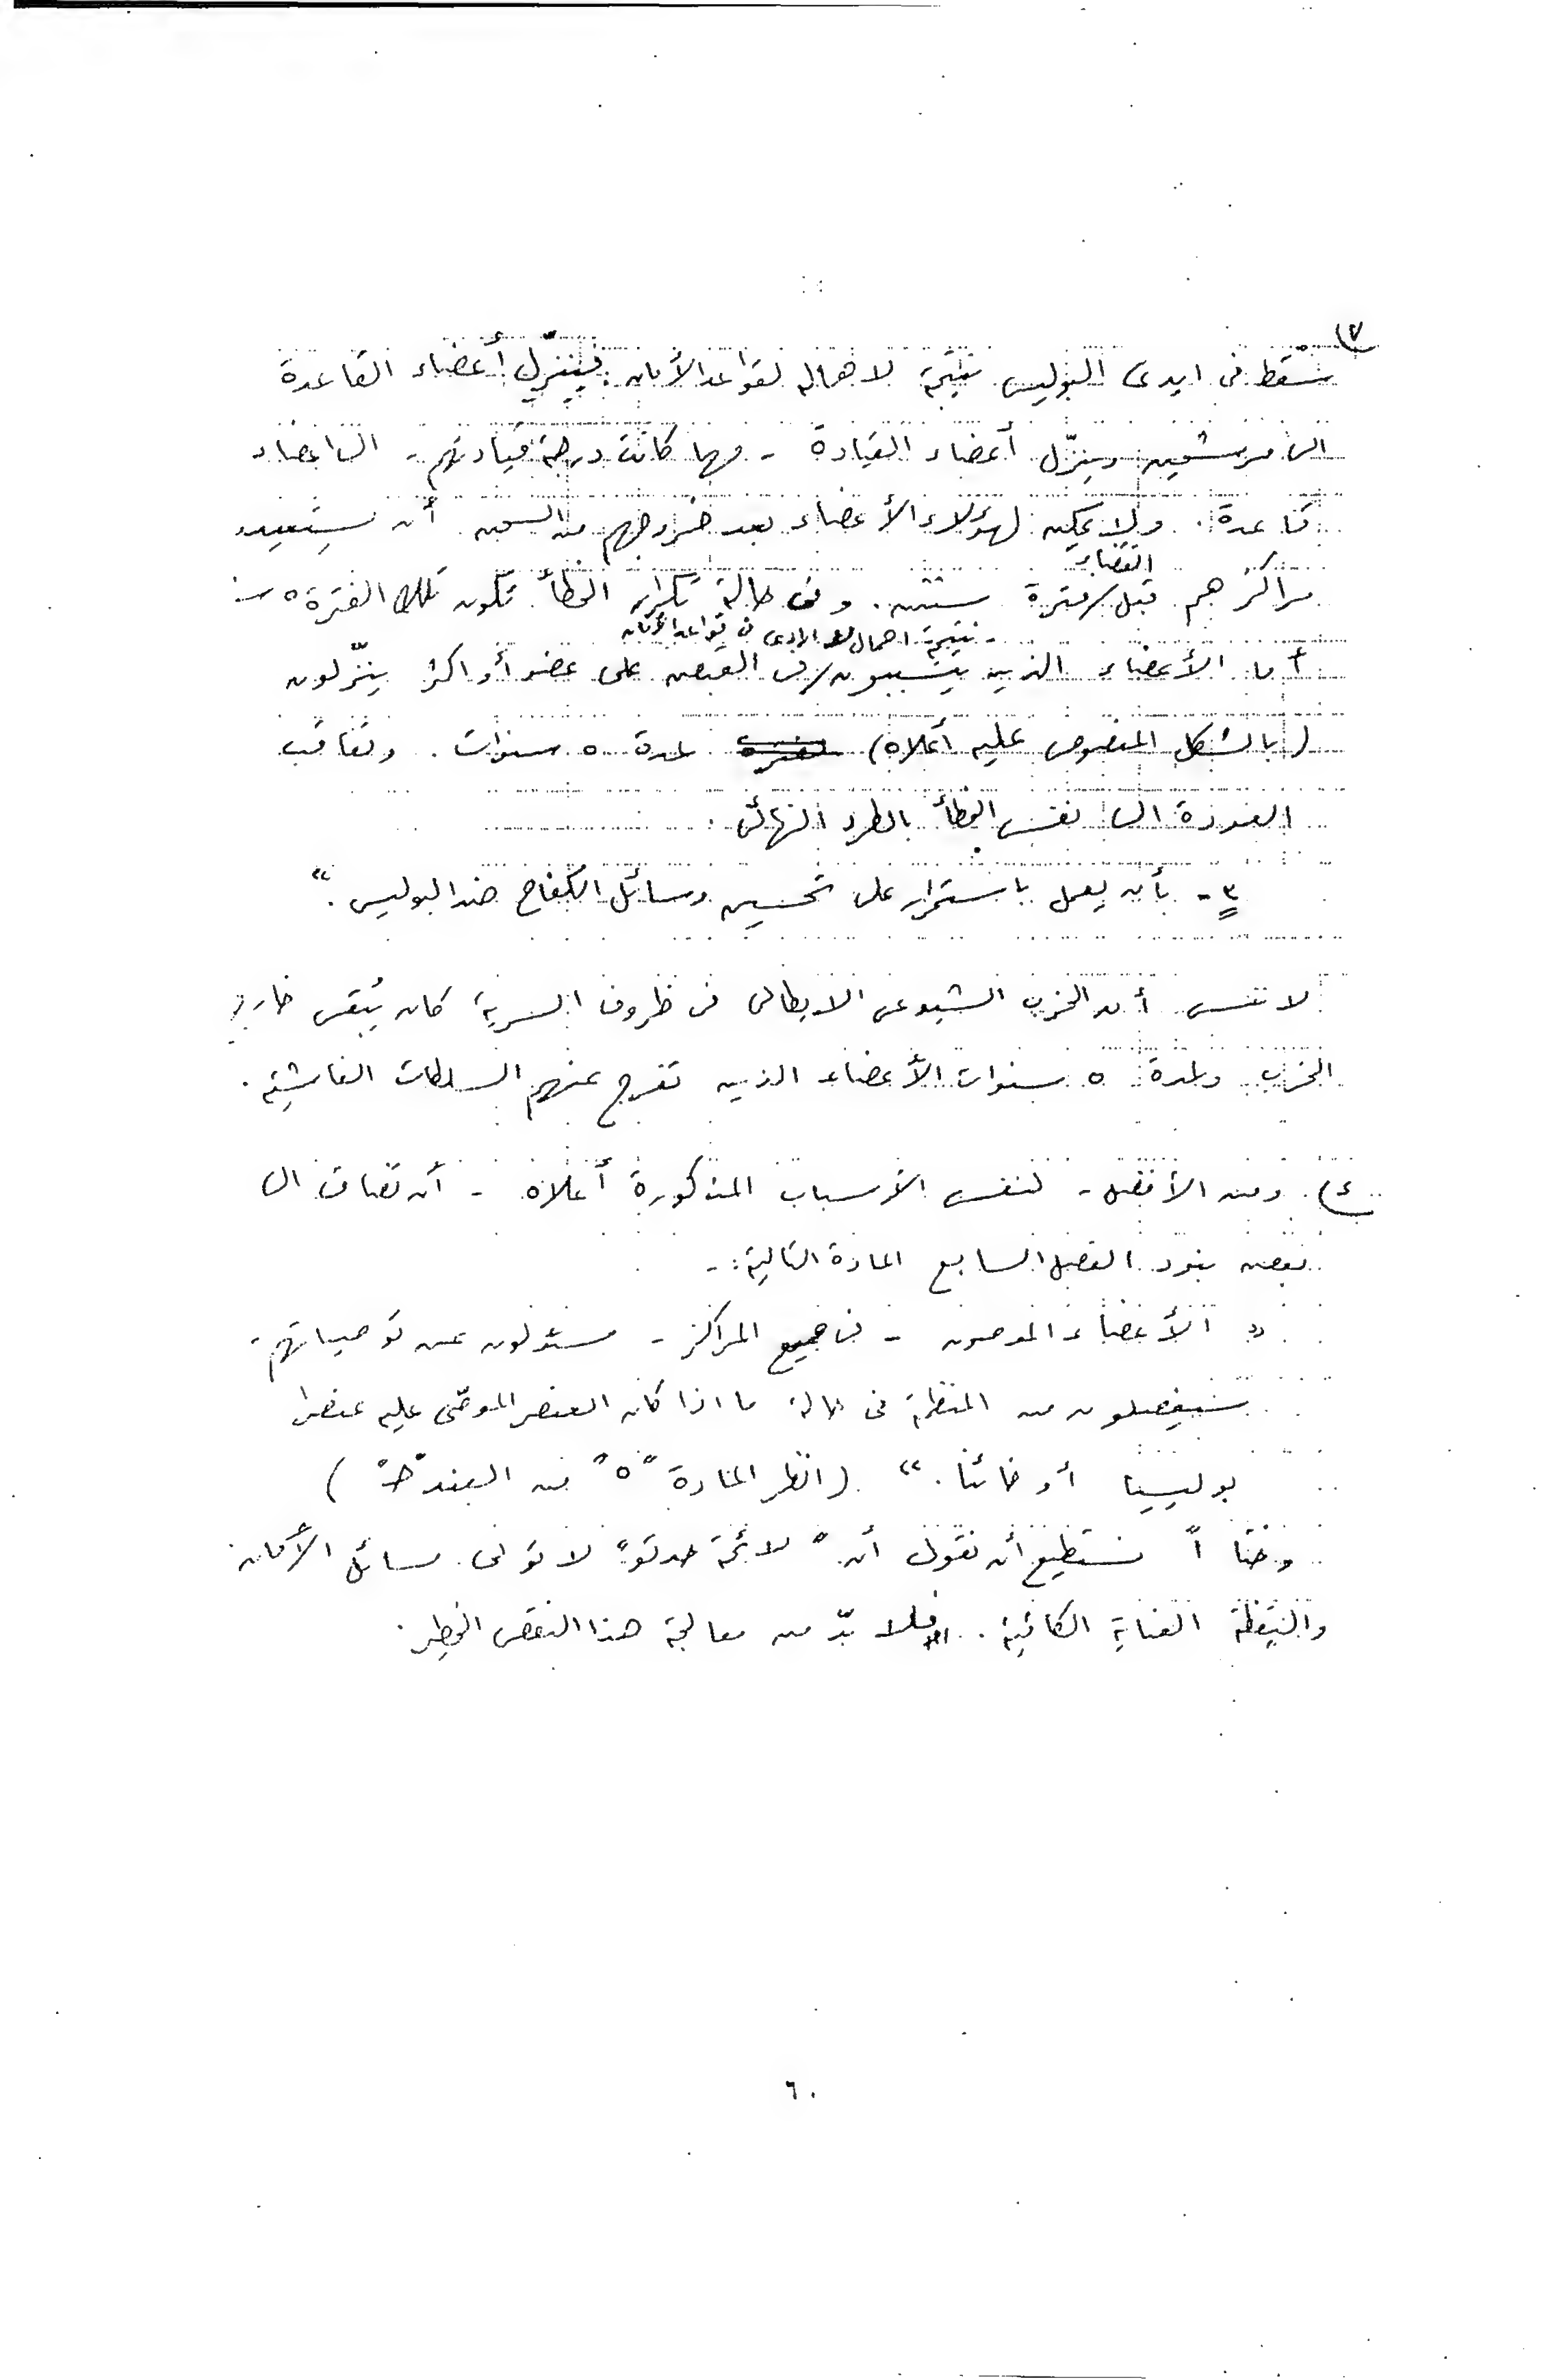 ٧)
سقط فى ايدى البوليس نتيجة لاهماله لقواعد الأمان. فينزّل أعضاء القاعدة
الى مرشحين وينزّل أعضاء القيادة - مهما كانت درجة قيادتهم - الى اعضاء
قاعدة. ولا يمكن لهؤلاء الأعضاء بعد خروجهم من السجن أن يستعيدوا
انقضاء
مراكزهم قبل / فترة سنتين. وفى حالة تكرار الخطأ تكون تلك الفترة ٥
نتيجة اهمال فى قواعد الأمان
أما الأعضاء الذين يتسببون / فى القبض على عضو أو اكثر ينزّلون
(بالشكل المنصوص عليه أعلاه) لفترة لمدة ٥ سنوات. وتعاقب
العودة الى نفس الخطأ بالطرد النهائى.
٣ - بأن يعمل باستمرار على تحسين وسائل الكفاح ضد البوليس."
لا ننسى أن الحزب الشيوعى الايطالى فى ظروف السرية كان يُبقى خارج
الحزب ولمدة ٥ سنوات الأعضاء الذين تفرج عنهم السلطات الفاشية.
٤) ومن الأفضل - لنفس الأسباب المذكورة أعلاه - أن تضاف الى
بعض بنود الفصل السابع المادة التالية: -
" الأعضاء الموصون - فى جميع المراكز - مسئولون عن توصياتهم -
سيفصلون من المنظمة فى حالة ما اذا كان العنصر الموصّى عليه عنصرا
بوليسيا أو خائنا." (انظر المادة "٥" من البند "ح")
وختاماً نستطيع أن نقول أن "لائحة حدتو" لا تولى مسائل الأمان
واليقظة العناية الكافية. فلا بدّ من معالجة هذا النقص الخطير.
٦٠